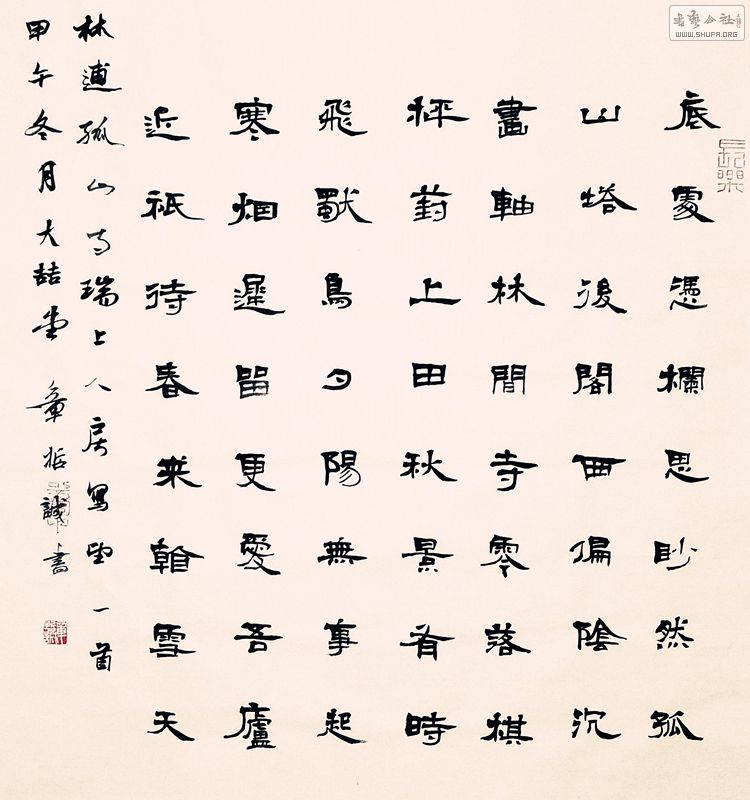 底處憑欄思眇然孤
山塔後閣西偏陰沉
畫軸林間寺零落棋
秤葑上田秋景有時
飛獨鳥夕陽無事起
寒烟遲留更愛吾廬
近祇待春来看雪天
林逋孤山寺瑞上人房寫望一首
甲午冬月大喆堂章哲誠書
長樂
書藝公社
WWW.SHUFA.ORG